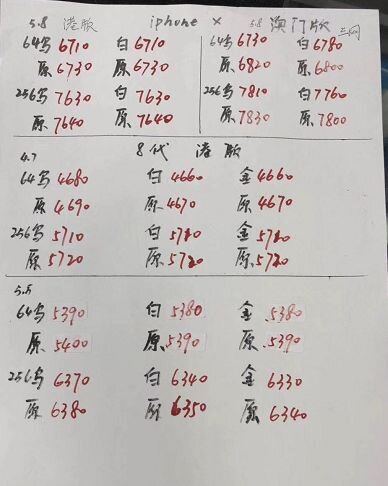 5.8 港版 iphone x 5.8 澳门版 三网
64鸟 6710 白 6710 64鸟 6730 白 6780
原 6730 原 6730 原 6820 原 6800
256鸟 7630 白 7630 256鸟 7810 白 7760
原 7640 原 7640 原 7830 原 7800
4.7 8代 港版
64鸟 4680 白 4660 金 4660
原 4690 原 4670 原 4670
256鸟 5710 白 5710 金 5710
原 5720 原 5720 原 5720
5.5
64鸟 5390 白 5380 金 5380
原 5400 原 5390 原 5390
256鸟 6370 白 6340 金 6330
原 6380 原 6350 原 6340